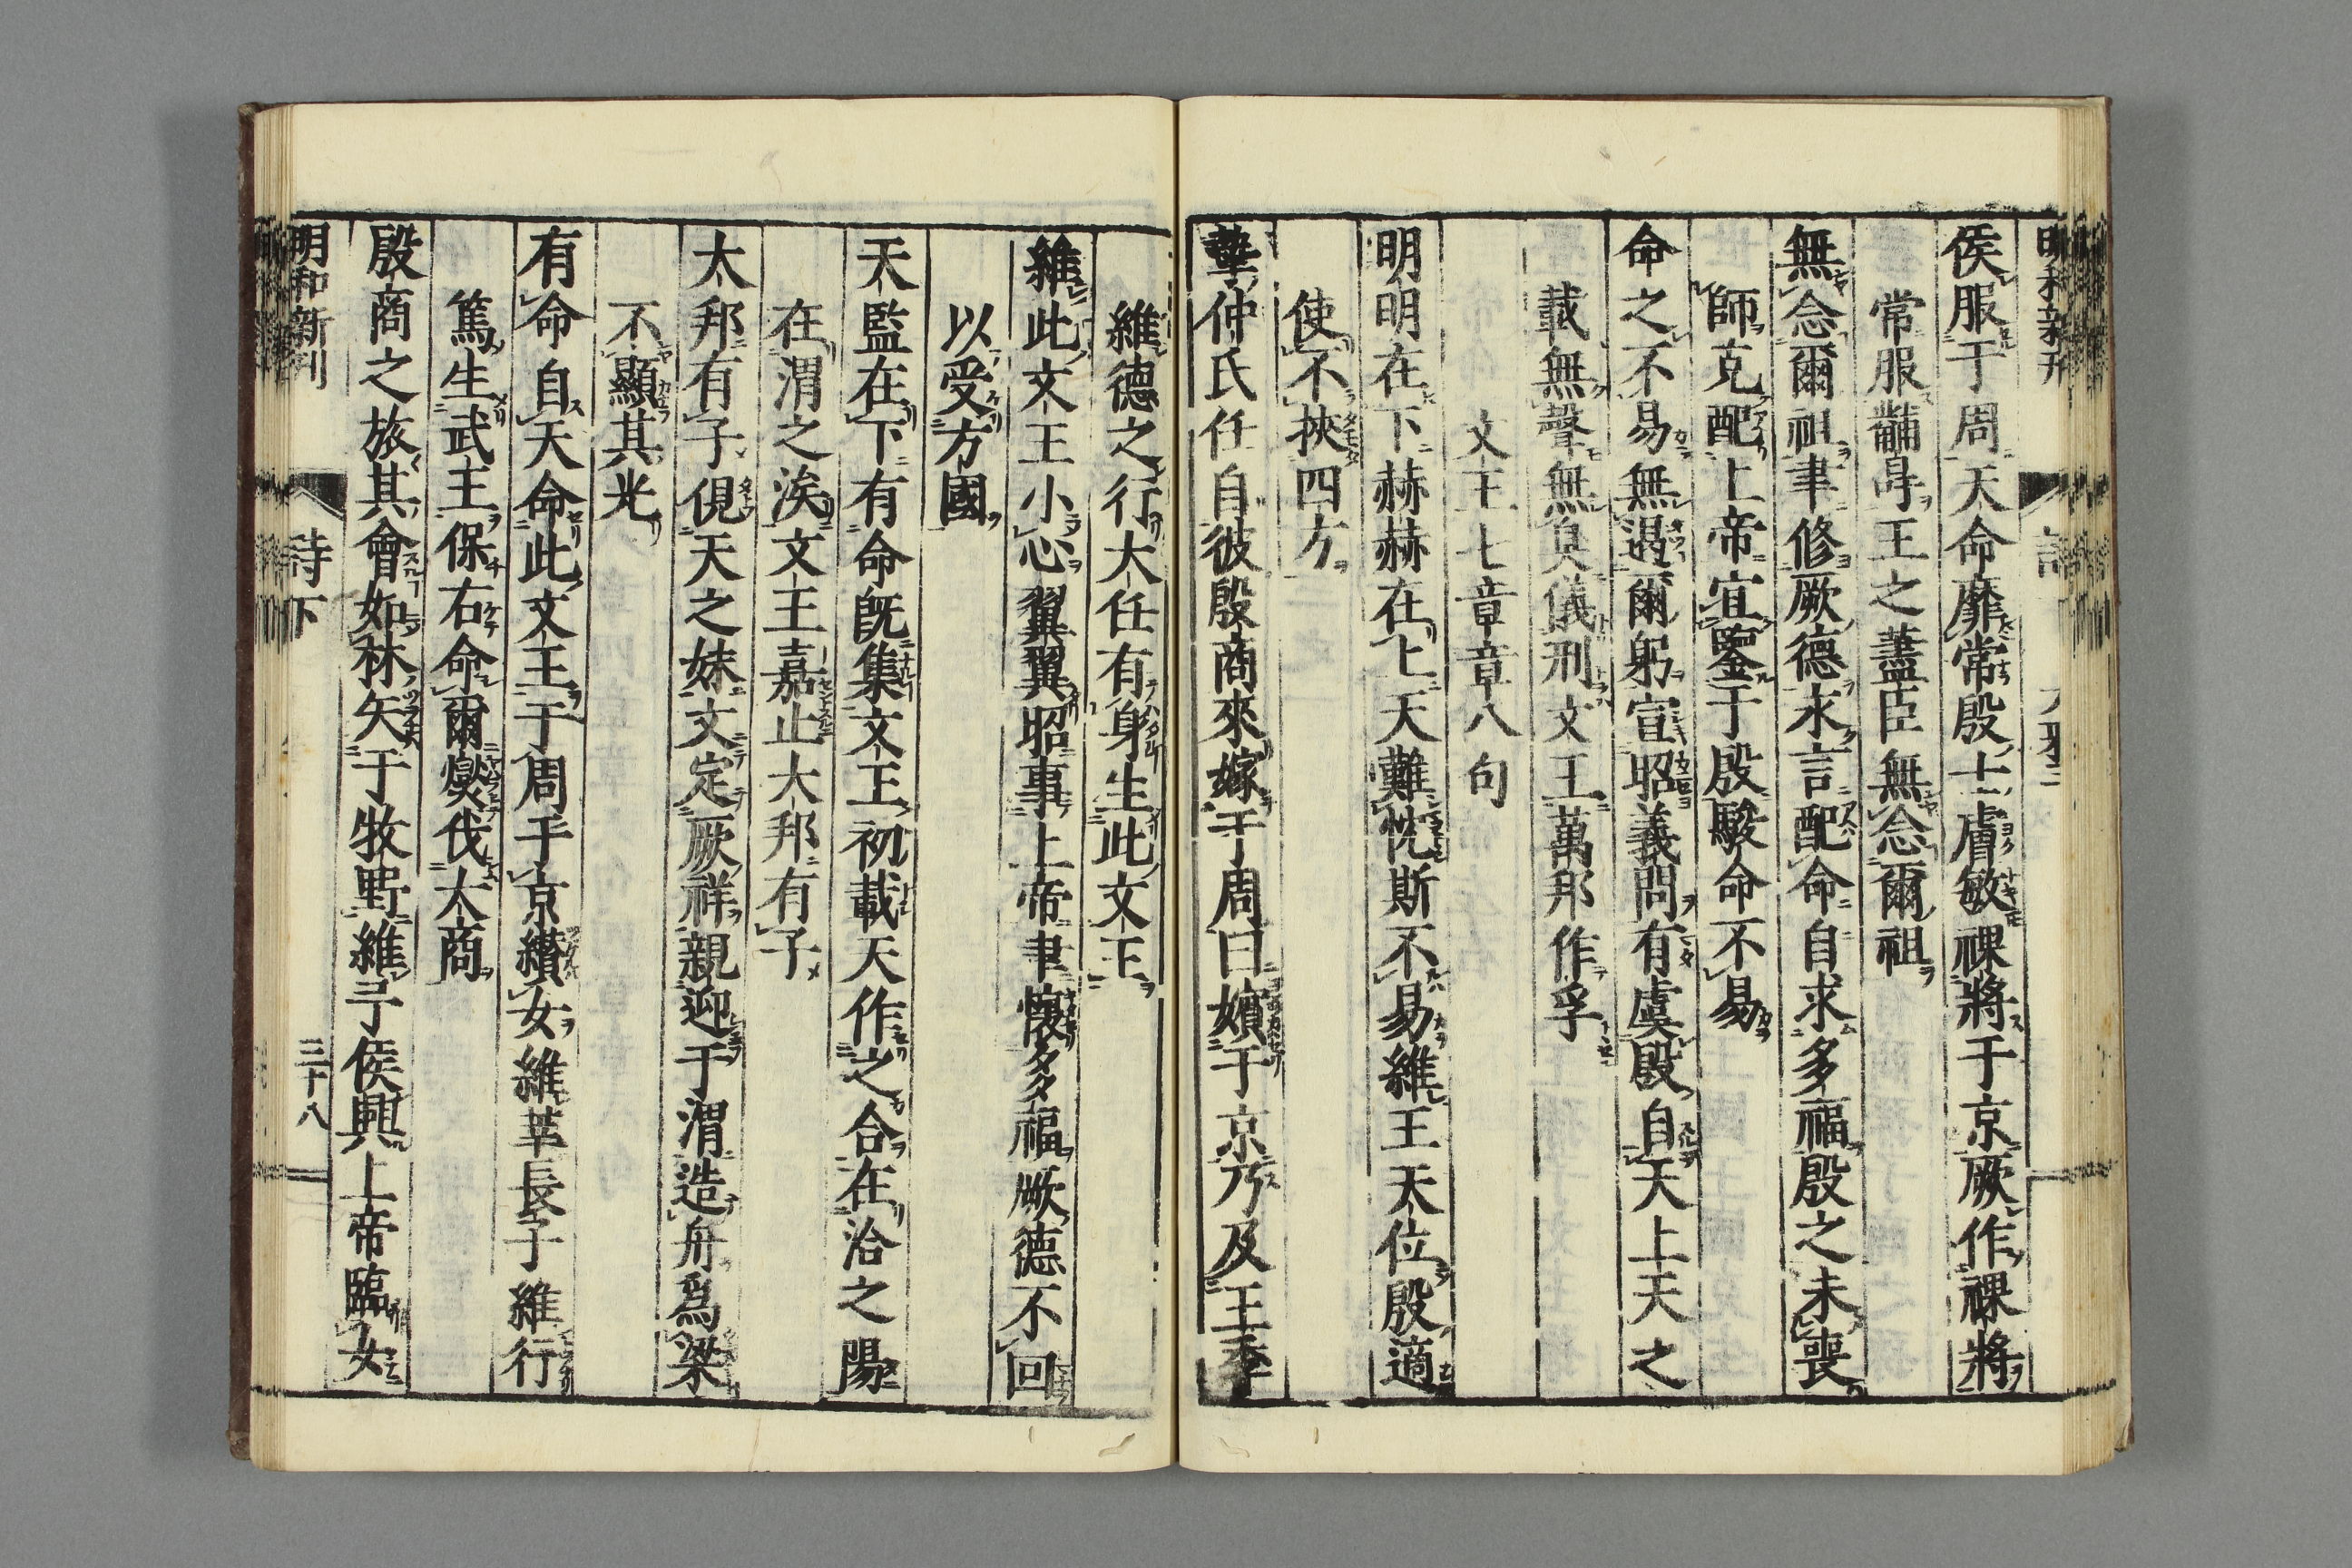 明和新刊
詩 大雅三
侯服于周天命靡常殷士膚敏祼將于京厥作祼將
常服黼冔王之藎臣無念爾祖
無念爾祖聿修厥德永言配命自求多福殷之未喪
師克配上帝宜鑒于殷駿命不易
命之不易無遏爾躬宣昭義問有虞殷自天上天之
載無聲無臭儀刑文王萬邦作孚
文王七章章八句
明明在下赫赫在上天難忱斯不易維王天位殷適
使不挾四方
摯仲氏任自彼殷商來嫁于周曰嬪于京乃及王季
維德之行大任有身生此文王
維此文王小心翼翼昭事上帝聿懷多福厥德不回
以受方國
天監在下有命既集文王初載天作之合在洽之陽
在渭之涘文王嘉止大邦有子
大邦有子俔天之妹文定厥祥親迎于渭造舟爲梁
不顯其光
有命自天命此文王于周于京纘女維莘長子維行
篤生武王保右命爾燮伐大商
殷商之旅其會如林矢于牧野維予侯興上帝臨女
明和新刊
詩下
三十八